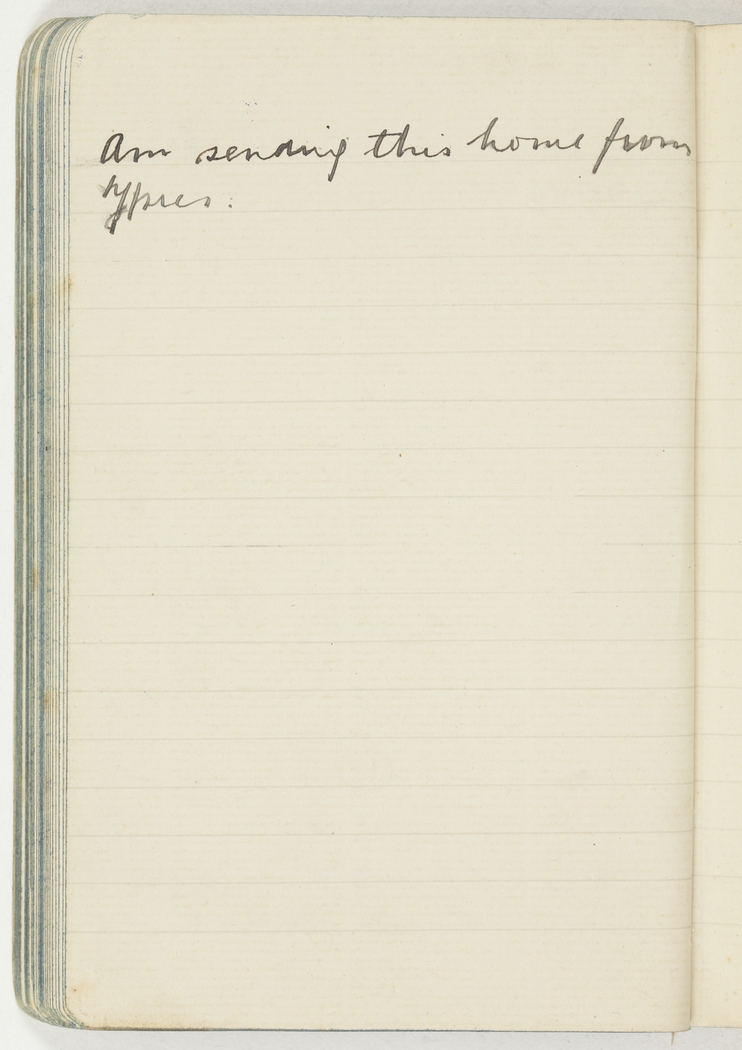 Am sending this home from
Ypres.